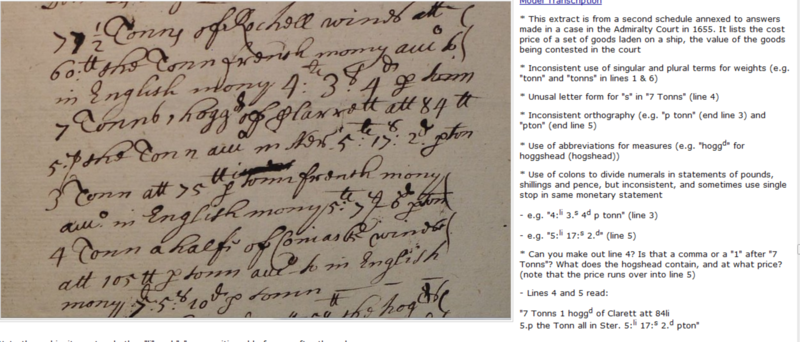 77 ½ Tonns of Rochell winds att
60.tt the Tonn french mony
in English mony 4: 3:s 4d p tonn
7 Tonns 1 hoggd of Clarrett att 84 tt
5.p the Tonn in Ster. 5:li 17:s 2.d pton
3 Tonn att 75 tt p tonn french mony
in English mony 5: p ton
4 Tonn a halfe of winds
att 105 tt p tonn in English
mony 7: 5:s 10d p tonn
the hogds
Model Transcription
* This extract is from a second schedule annexed to answers
made in a case in the Admiralty Court in 1655. It lists the cost
price of a set of goods laden on a ship, the value of the goods
being contested in the court
* Inconsistent use of singular and plural terms for weights (e.g.
"tonn" and "tonns" in lines 1 & 6)
* Unusual letter form for "s" in "7 Tonns" (line 4)
* Inconsistent orthography (e.g. "p tonn" (end line 3) and
"pton" (end line 5)
* Use of abbreviations for measures (e.g. "hoggds" for
hoggshead (hogshead))
* Use of colons to divide numerals in statements of pounds,
shillings and pence, but inconsistent, and sometimes use single
stop in same monetary statement
- e.g. "4:li 3.s 4d p tonn" (line 3)
- e.g. "5:li 17:s 2.d" (line 5)
* Can you make out line 4? Is that a comma or a "1" after "7
Tonns"? What does the hogshead contain, and at what price?
(note that the price runs over into line 5)
- Lines 4 and 5 read:
"7 Tonns 1 hoggd of Clarett att 84li
5.p the Tonn all in Ster. 5:li 17:s 2.d pton"